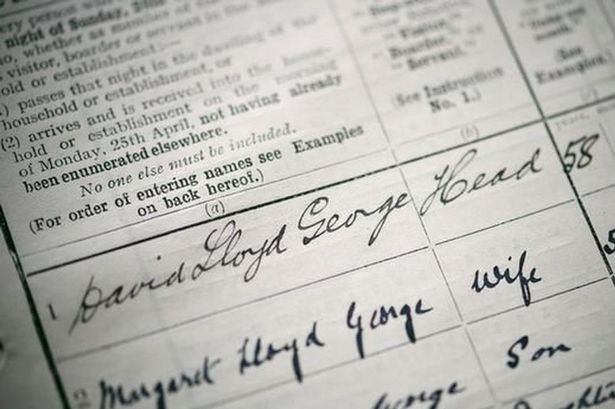 every person who
night of Sunday, 24th
, whether as member of
visitor, boarder or servant in the
old or establishment:
) passes that night in the dwelling of the
household or establishment, or
(2) arrives and is received into the house-
hold or establishment on the morning
of Monday, 25th April, not having already
been enumerated elsewhere.
No one else must be included.
(For order of entering names see Examples
on back hereof.)
(a)
"Visitor,"
"Boarder,"
or
"Servant."
(See Instruction
No. 1.)
(b)
(See
Examples
years.
1 David Lloyd George Head 58
2 Margaret Lloyd George Wife
George Son